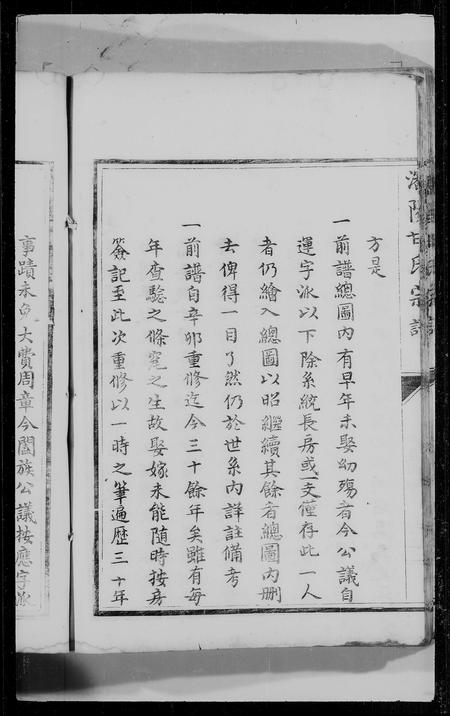 瀋陽甘氏宗譜
方是
一前譜總圖內有早年未娶幼殤者今公議自
運字派以下除系統長房或一支僅存此一人
者仍繪入總圖以昭繼續其餘者總圖內刪
去俾得一目了然仍於世系內詳註備考
一前譜自辛卯重修迄今三十餘年矣雖有每
年查驗之條寃之生故娶嫁未能隨時按房
簽記至此次重修以一時之筆遍歷三十年
事蹟未免大費周章今闔族公議按應字派